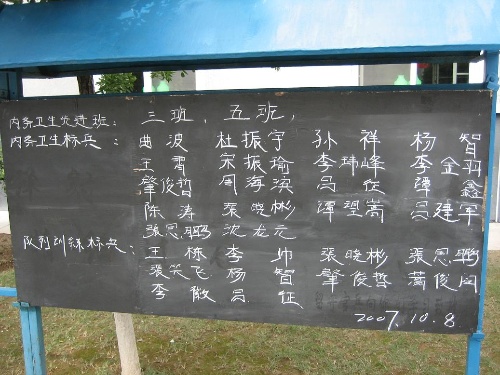 内务卫生先进班： 三班、五班，
内务卫生标兵： 曲波 杜振宇 孙祥 杨智
王雷 宋振瑜 李玮峰 李金羽
肇俊哲 周海滨 吕征 谭鑫
陈涛 张晓彬 谭望嵩 吕建军
张恩鹏 沈龙元
队列训练标兵： 王栋 李帅 张晓彬 张恩鹏
张笑飞 杨智 肇俊哲 蒿俊闵
李毅 吕征
2007.10.8